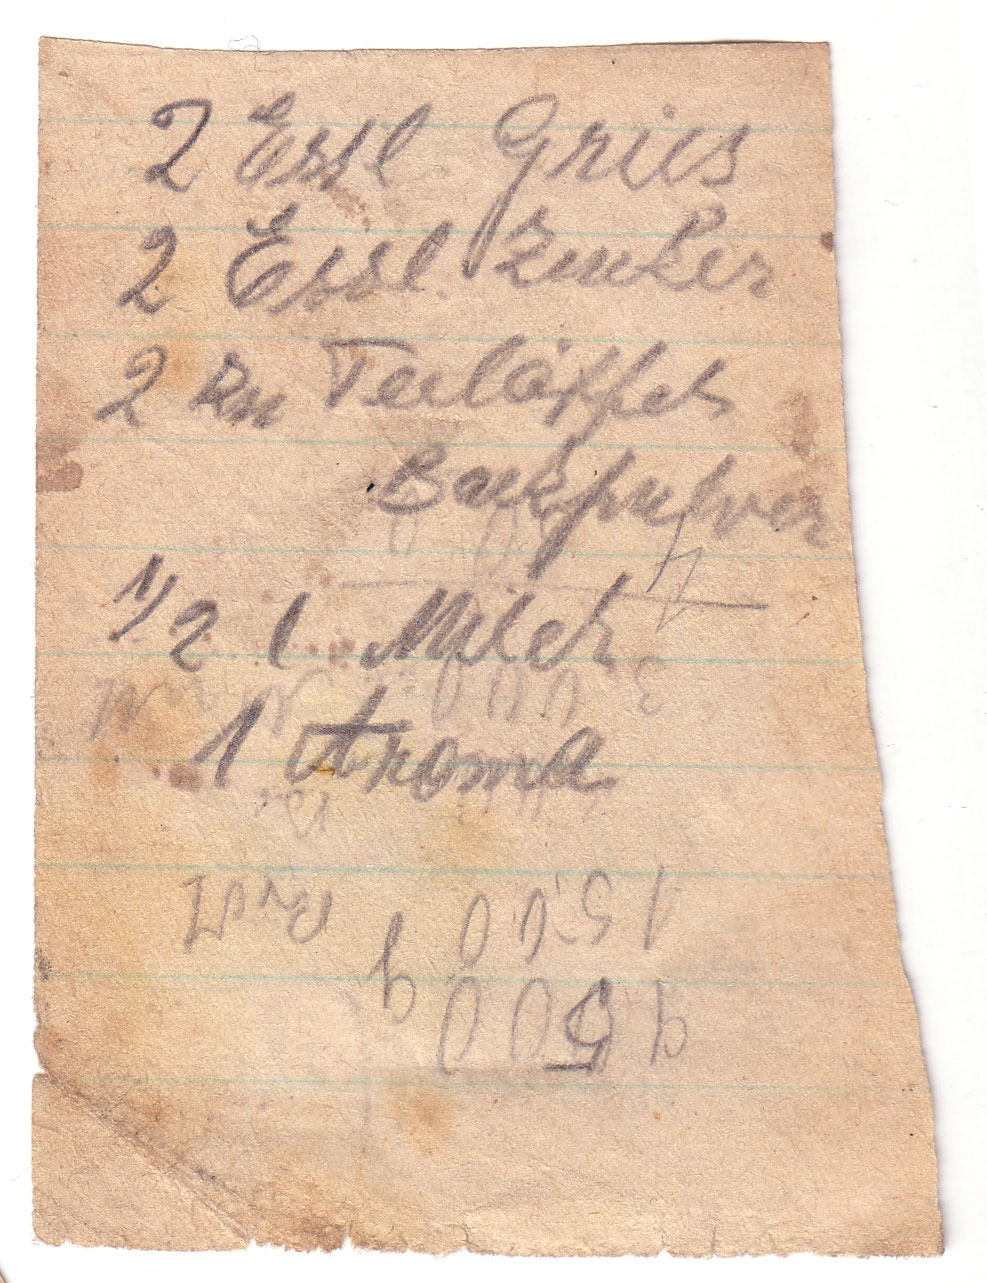 2 Essl. Gries
2 Essl. Zucker
2 Kn Teelöffel
Backpulver
1/2 l. Milch
1 Aroma
1500 Brot
9500 g